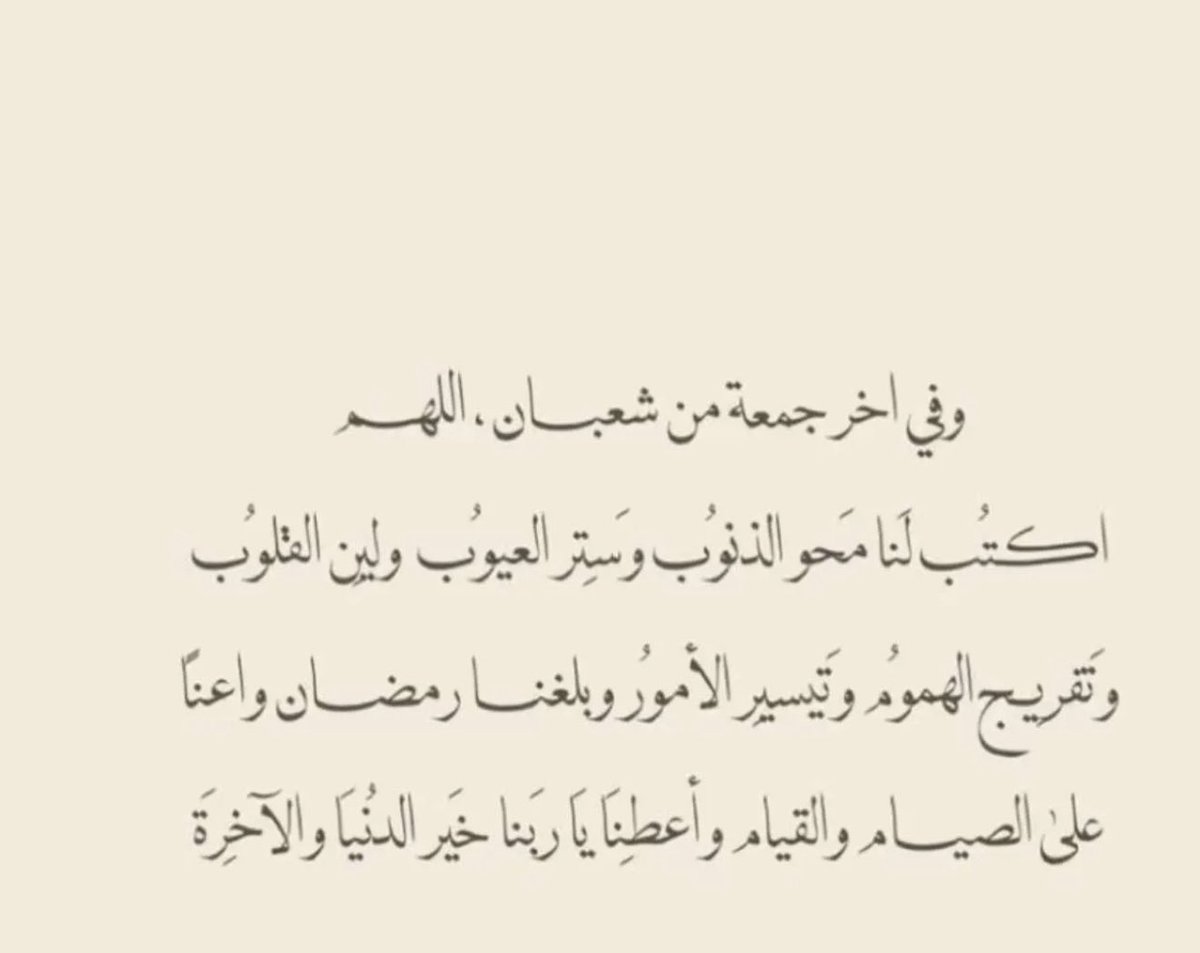 وفي اخر جمعة من شعبـان ، اللهـم
اكـتُب لَنا مَحو الذنوُب وسَتِر العيوُب ولينِ القلوُب
وتَفريـج الهمومُ وتَيسيرِ الأمورُ وبلغنـا رمضـان واعناً
علىٰ الصيـام والقيام وأعطِنَا يَا ربَنا خيَر الدنُيَا والآخرِةَ